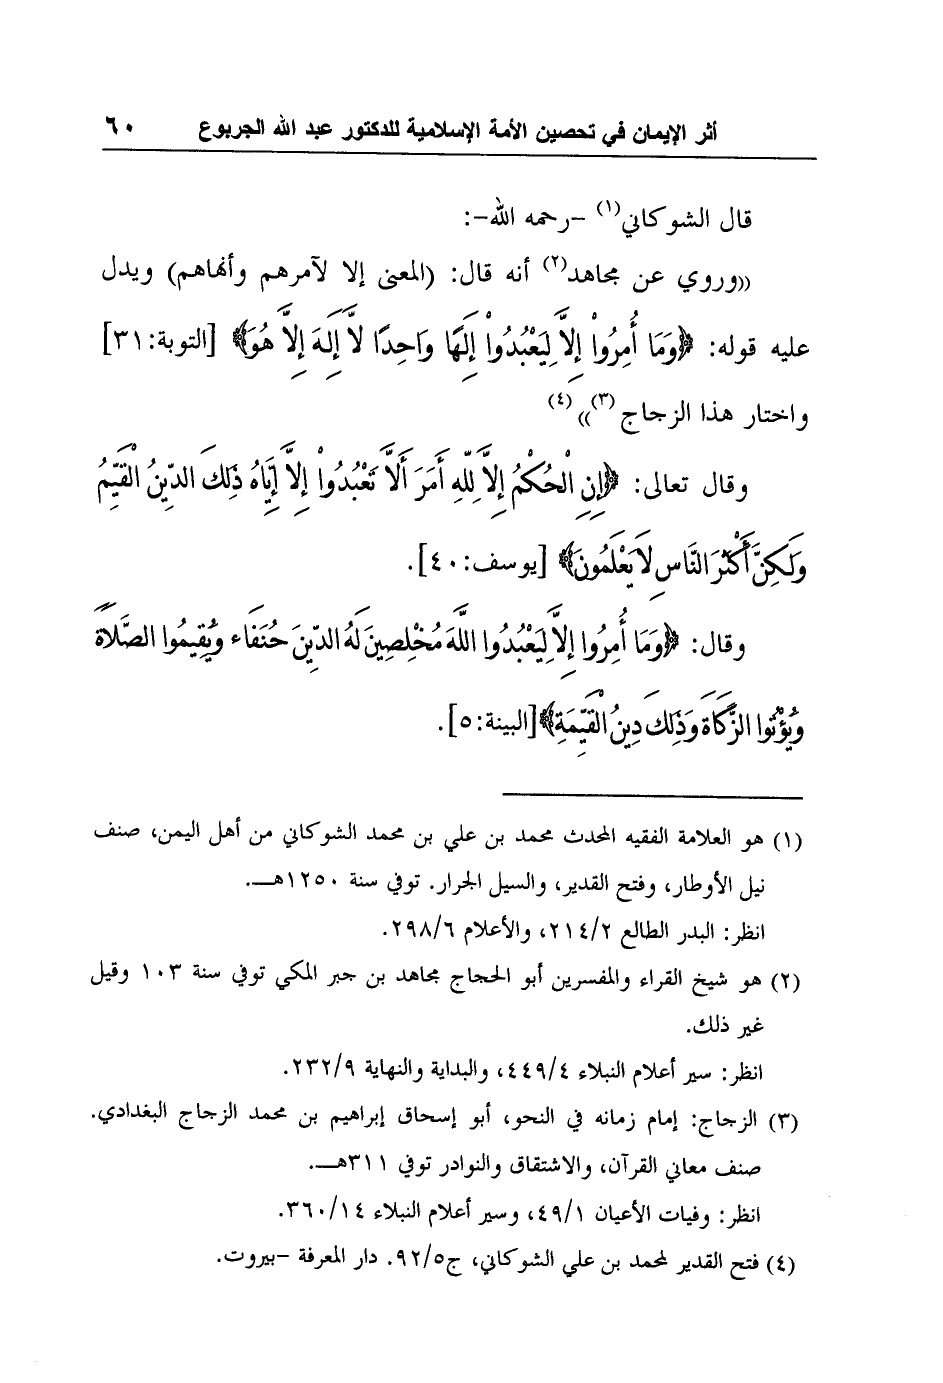 أثر الإيمان في تحصين الأمة الإسلامية للدكتور عبد الله الجربوع ٦٠
قال الشوكاني(١) -رحمه الله-:
((وروي عن مجاهد(٢) أنه قال: (المعنى إلا لآمرهم وأنهاهم) ويدل
عليه قوله: ﴿وَمَا أُمِرُواْ إِلاَّ لِيَعْبُدُواْ إِلَهًا وَاحِدًا لاَّ إِلَهَ إِلاَّ هُوَ﴾ [التوبة:٣١]
واختار هذا الزجاج(٣))) (٤)
وقال تعالى: ﴿إِنِ الْحُكْمُ إِلاَّ لِلّهِ أَمَرَ أَلاَّ تَعْبُدُواْ إِلاَّ إِيَّاهُ ذَلِكَ الدِّينُ الْقَيِّمُ
وَلَكِنَّ أَكْثَرَ النَّاسِ لاَ يَعْلَمُونَ﴾ [يوسف:٤٠].
وقال: ﴿وَمَا أُمِرُوا إِلاَّ لِيَعْبُدُوا اللَّهَ مُخْلِصِينَ لَهُ الدِّينَ حُنَفَاء وَيُقِيمُوا الصَّلاَةَ
وَيُؤْتُوا الزَّكَاةَ وَذَلِكَ دِينُ الْقَيِّمَةِ﴾[البينة:٥].
(١) هو العلامة الفقيه المحدث محمد بن علي بن محمد الشوكاني من أهل اليمن، صنف
نيل الأوطار، وفتح القدير، والسيل الجرار. توفي سنة ١٢٥٠هـ.
انظر: البدر الطالع ٢١٤/٢، والأعلام ٢٩٨/٦.
(٢) هو شيخ القراء والمفسرين أبو الحجاج مجاهد بن جبر المكي توفي سنة ١٠٣ وقيل
غير ذلك.
انظر: سير أعلام النبلاء ٤٤٩/٤، والبداية والنهاية ٢٣٢/٩.
(٣) الزجاج: إمام زمانه في النحو، أبو إسحاق إبراهيم بن محمد الزجاج البغدادي.
صنف معاني القرآن، والاشتقاق والنوادر توفي ٣١١هـ.
انظر: وفيات الأعيان ٤٩/١، وسير أعلام النبلاء ٣٦٠/١٤.
(٤) فتح القدير لمحمد بن علي الشوكاني، ج٩٢/٥. دار المعرفة -بيروت.